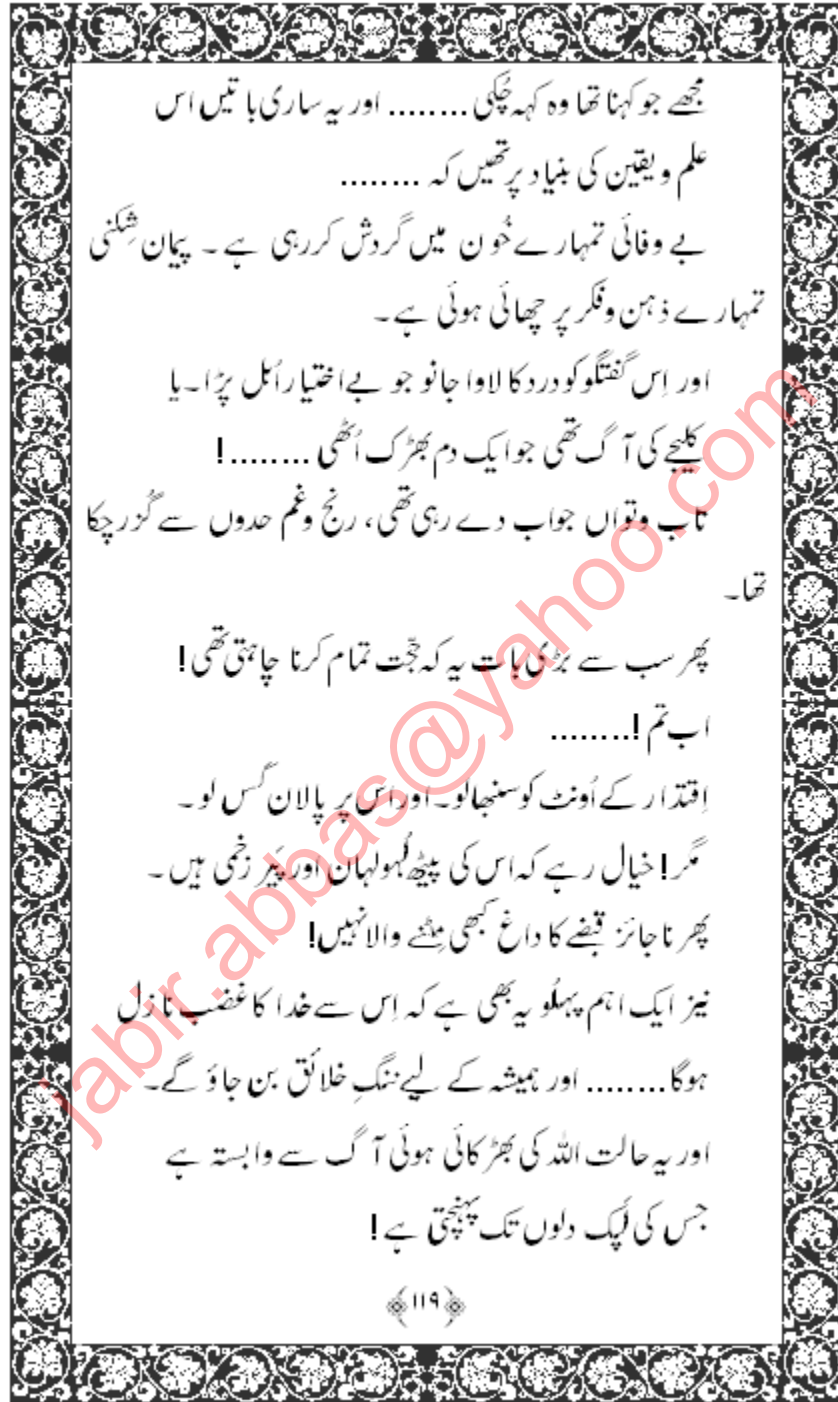 مجھے جو کہنا تھا وہ کہہ چُکی ........ اور یہ ساری باتیں اس
علم و یقین کی بنیاد پر تھیں کہ ........
بے وفائی تمہارے خُون میں گردش کررہی ہے ۔ پیمان شِکنی
تمہارے ذہن وفکر پر چھائی ہوئی ہے ۔
اور اِس گفتگو کو درد کا لاوا جانو جو بے اختیار اُبل پڑا ۔ یا
کلیجے کی آگ تھی جو ایک دم بھڑک اُٹھی ........ !
تاب وتواں جواب دے رہی تھی ، رنج وغم حدوں سے گُزر چکا
تھا ۔
پھر سب سے بڑی بات یہ کہ حُجّت تمام کرنا چاہتی تھی !
اب تم ! ........
اِقتدار کے اُونٹ کو سنبھالو ۔ اور اس پر پالان کَس لو ۔
مگر ! خیال رہے کہ اس کی پیٹھ لُہولہان اور پَیر زخمی ہیں ۔
پھر ناجائز قبضے کا داغ کبھی مِٹنے والا نہیں !
نیز ایک اہم پہلُو یہ بھی ہے کہ اِس سے خدا کا غضب نازل
ہوگا ........ اور ہمیشہ کے لیے ننگِ خلائق بن جاؤ گے ۔
اور یہ حالت اللہ کی بھڑکائی ہوئی آگ سے وابستہ ہے
جس کی لَپک دلوں تک پہنچتی ہے !
﴿۱۱۹﴾
jabir.abbas@yahoo.com